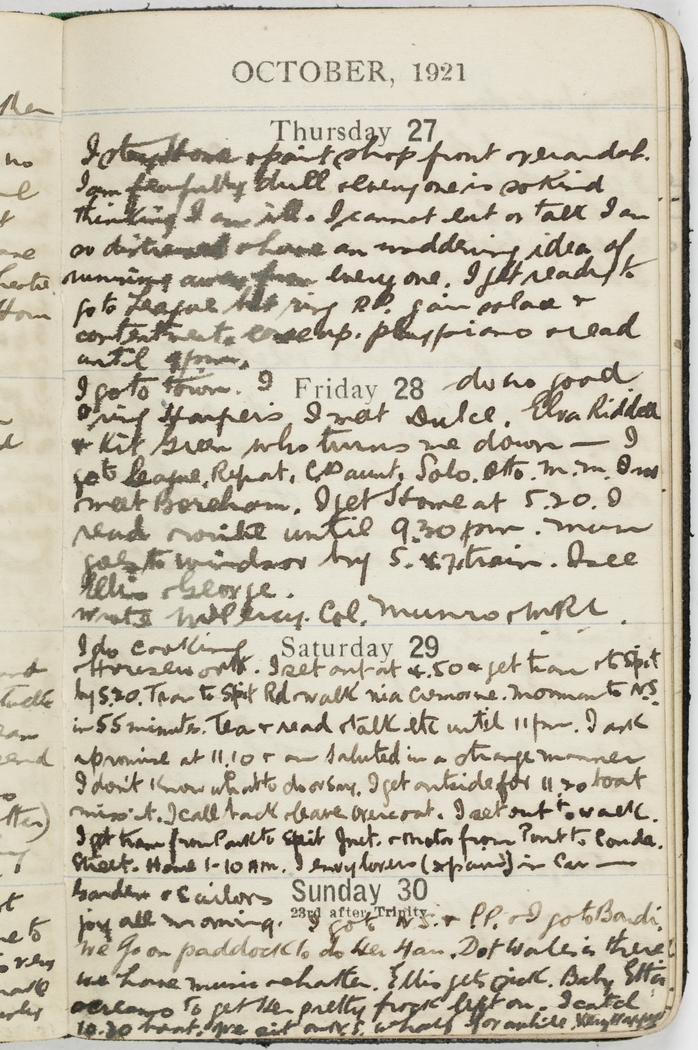 OCTOBER, 1921
Thursday 27
I stay Home & paint shop front & verandah.
I am fearfully dull & everyone is so kind
thinking I am ill. I cannot eat or talk I am
so distressed & have an maddening idea of
running away from everyone. I get ready to
go to League but ring P.P. gain solace &
contentment. play piano & read
until
I go to town. I Friday 28 do no good
ring Harpers I meet Dulce, Elva Riddell
& Kit Green who turns me down — I
go to League, Repat, Solo. Otto. M.M.
meet Boreham. I get Home at 5.20. I
read & write until 9.30 pm. Mum
goes to Windsor by 5. train. I see
Ellis & George.
wrote Col. Munro &
I do cooking Saturday 29
& Housework. I set out at 4.50 & get tram to Spit
by 5.20. Tram to Spit Rd & walk via Cremorne. Mosman to N.S.
in 55 minutes. Tea & read & talk etc until 11 pm. I ask
a promise at 11.10 & am saluted in a strange manner
I don't know what to do or say. I get outside for 11.20 boat
miss it. I call back & leave overcoat. I set out to walk.
I get tram from Park to Spit Junct. & motor from Point to
Street. Home 1-10 AM. I envy lovers (a pair) in Car —
Garden & Sailors Sunday 30
23rd after Trinity
joy all morning. I go to N.S. & P.P. & I go to Bondi.
We go on paddock to do Her Hair. Dot Wales is there
we have music & chatter. Ellis gets sick. Baby Etta
screams to get Her pretty frock left on. I catch
10.30 boat. We sit on N.S. wharf for awhile. Very Happy